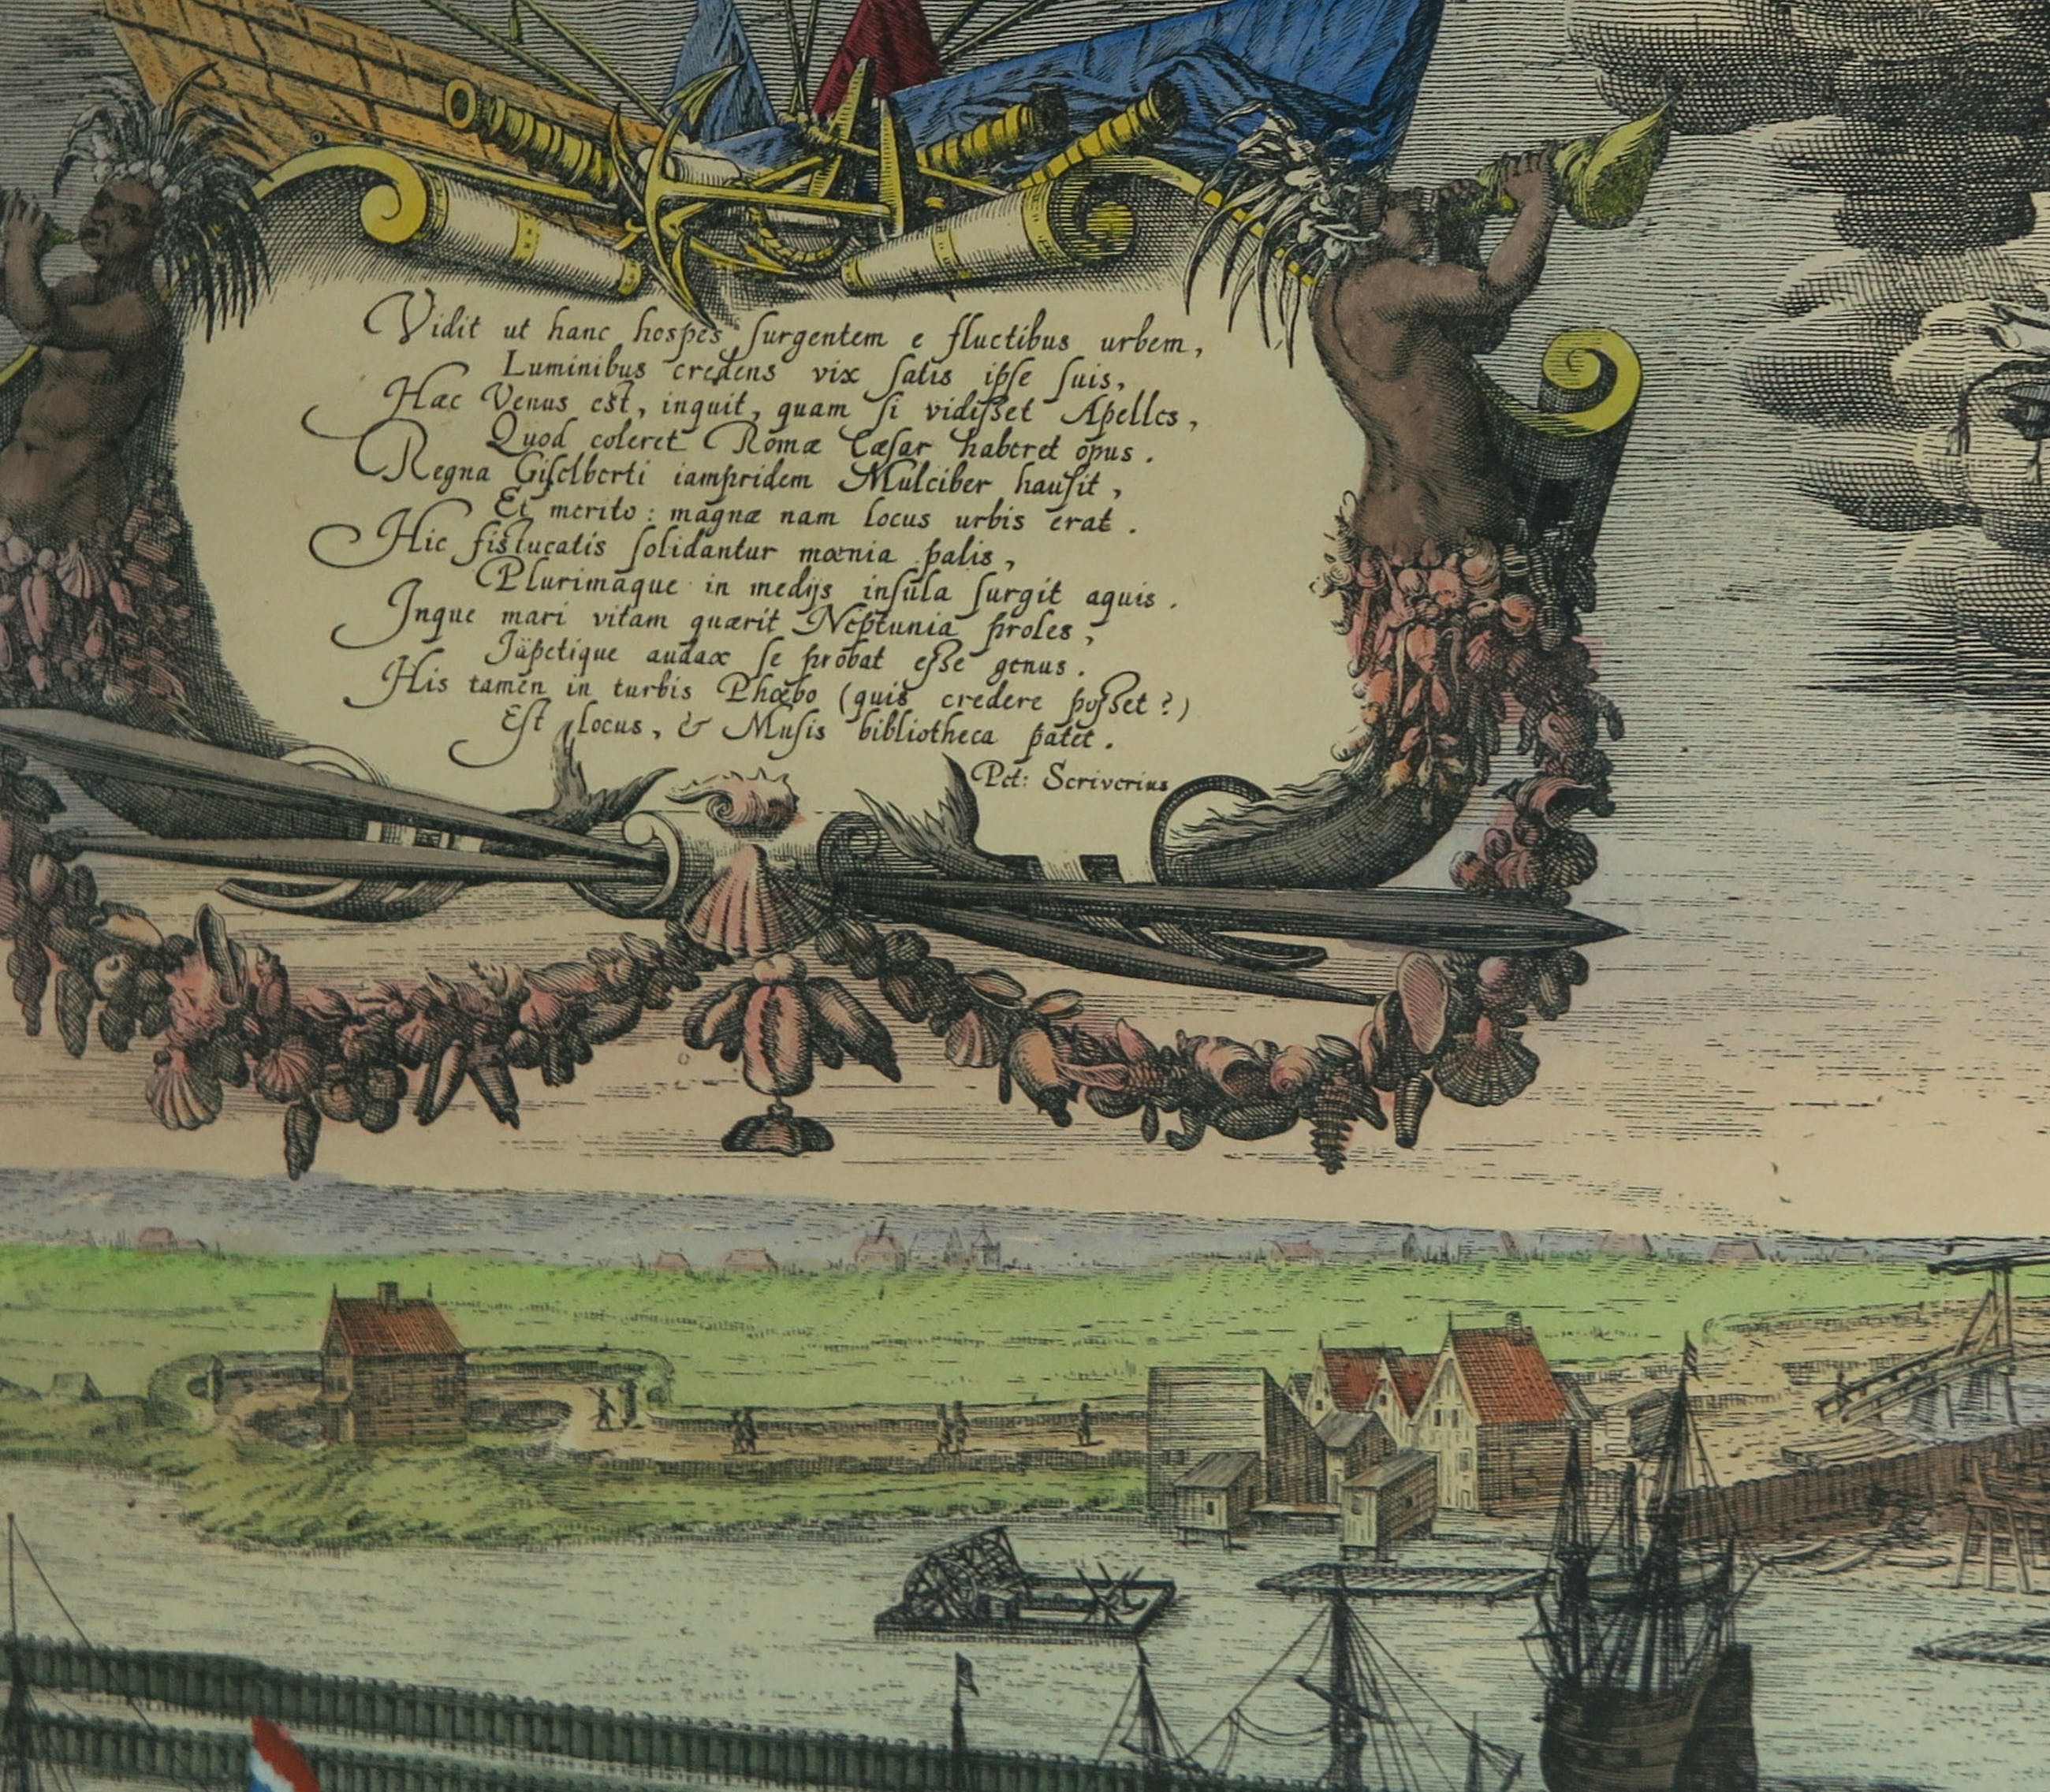 Vidit ut hanc hospes ſurgentem e fluctibus urbem,
Luminibus credens vix ſatis ipſe ſuis,
Hæc Venus est, inquit, quam ſi vidiſset Apelles,
Quod coleret Romæ Cæſar haberet opus.
Regna Giſelberti iampridem Mulciber hauſit,
Et merito: magnæ nam locus urbis erat.
Hic fistucatis ſolidantur mœnia palis,
Plurimaque in medijs inſula ſurgit aquis.
Inque mari vitam quærit Neptunia proles,
Iäpetique audax ſe probat eſse genus.
His tamen in turbis Phœbo (quis credere poſset?)
Eſt locus, & Muſis bibliotheca patet.
Pet: Scriverius